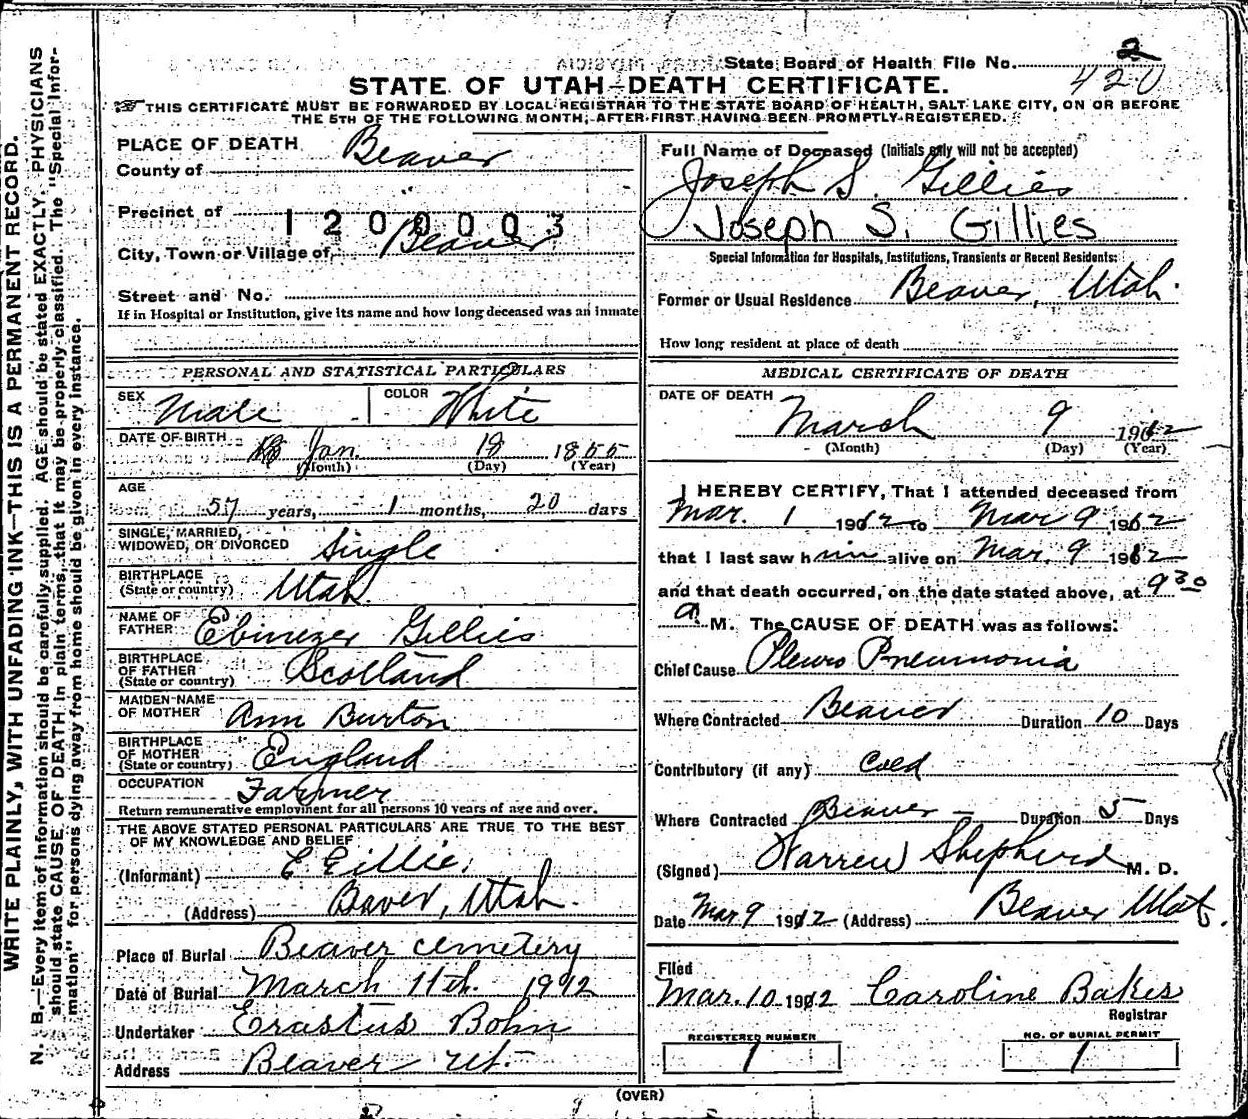 State Board of Health File No. 2
420
STATE OF UTAH—DEATH CERTIFICATE.
THIS CERTIFICATE MUST BE FORWARDED BY LOCAL REGISTRAR TO THE STATE BOARD OF HEALTH, SALT LAKE CITY, ON OR BEFORE
THE 5TH OF THE FOLLOWING MONTH, AFTER FIRST HAVING BEEN PROMPTLY REGISTERED.
WRITE PLAINLY, WITH UNFADING INK—THIS IS A PERMANENT RECORD.
N. B.—Every item of information should be carefully supplied. AGE should be stated EXACTLY. PHYSICIANS
should state CAUSE OF DEATH in plain terms, that it may be properly classified. The "Special Infor-
mation" for persons dying away from home should be given in every instance.
PLACE OF DEATH
County of Beaver
Precinct of
1200003
City, Town or Village of Beaver
Street and No.
If in Hospital or Institution, give its name and how long deceased was an inmate
PERSONAL AND STATISTICAL PARTICULARS
SEX Male COLOR White
DATE OF BIRTH Jan 18 1855
(Month) (Day) (Year)
AGE
57 years, 1 months, 20 days
SINGLE, MARRIED,
WIDOWED, OR DIVORCED Single
BIRTHPLACE
(State or country) Utah
NAME OF
FATHER Ebinezer Gillies
BIRTHPLACE
OF FATHER
(State or country) Scotland
MAIDEN NAME
OF MOTHER Ann Burton
BIRTHPLACE
OF MOTHER
(State or country) England
OCCUPATION Farmer
Return remunerative employment for all persons 10 years of age and over.
THE ABOVE STATED PERSONAL PARTICULARS ARE TRUE TO THE BEST
OF MY KNOWLEDGE AND BELIEF
(Informant) E Gillie
(Address) Baver, Utah.
Place of Burial Beaver cemetery
Date of Burial March 11th. 1912
Undertaker Erastus Bohn
Address Beaver Ut.
Full Name of Deceased (Initials only will not be accepted)
Joseph S. Gillies
Joseph S. Gillies
Special Information for Hospitals, Institutions, Transients or Recent Residents:
Former or Usual Residence Beaver, Utah.
How long resident at place of death
MEDICAL CERTIFICATE OF DEATH
DATE OF DEATH
March 9 1912
(Month) (Day) (Year)
I HEREBY CERTIFY, That I attended deceased from
Mar. 1 1912 to Mar 9 1912
that I last saw him alive on Mar. 9 1912
and that death occurred, on the date stated above, at 9 30
a. M. The CAUSE OF DEATH was as follows:
Chief Cause Pleuro Pneumonia
Where Contracted Beaver Duration 10 Days
Contributory (if any) Cold
Where Contracted Beaver Duration 5 Days
(Signed) Warren Shepherd M. D.
Date Mar 9 1912 (Address) Beaver Utah.
Filed
Mar. 10 1912 Caroline Baker
Registrar
REGISTERED NUMBER
1
NO. OF BURIAL PERMIT
1
(OVER)